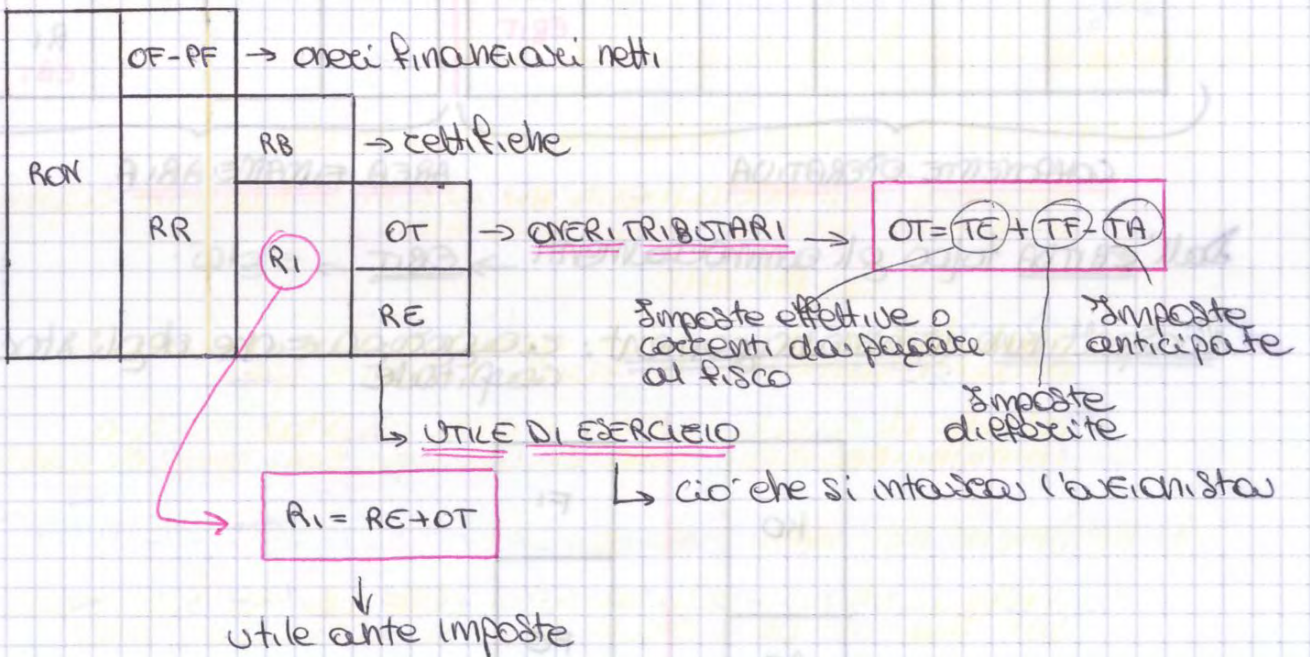 OF-PF → oneri finanziari netti
RB → rettifiche
RON
RR
OT → ONERI TRIBUTARI → OT = TE + TF - TA
RI
RE
Imposte effettive o correnti da pagare al fisco
Imposte differite
Imposte anticipate
↳ UTILE DI ESERCIZIO
↳ ciò che si intasca l'azionista
RI = RE+OT
utile ante imposte